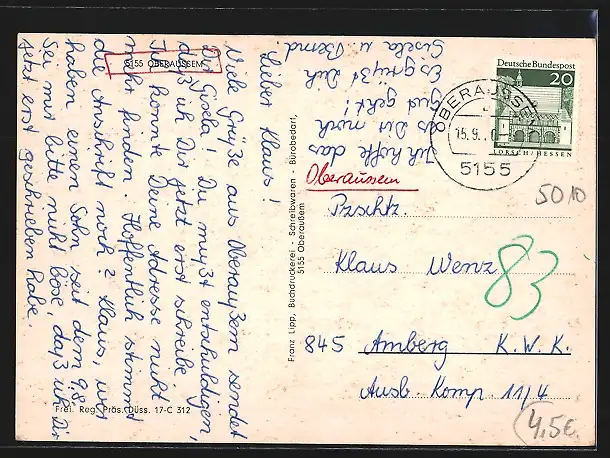 Lieber Klaus!
Viele Grüße aus Oberaußem sendet
Dir Gisela! Du mußt entschuldigen,
daß ich Dir jetzt erst schreibe
Ich konnte Deine Adresse nicht
mehr finden. Hoffentlich stimmt
die Anschrift noch? Klaus, wir
haben einen Sohn seit dem 9.8.
Sei mir bitte nicht böse, daß ich Dir
jetzt erst geschrieben habe.
Ich hoffe das
es Dir noch
gut geht!
Es grüßt Dich
Gisela u. Bernd.
5155 OBERAUSSEM
Frei. Reg. Präs. Düss. 17-C 312
Franz Lipp, Buchdruckerei - Schreibwaren - Bürobedarf,
5155 Oberaußem
Deutsche Bundespost
20
LORSCH/HESSEN
OBERAUSSEM
15.9.
5155
Oberaussem
5010
Pzschtz.
Klaus Wenz
83
845 Amberg K.W.K.
Ausb. Komp 11/4
4,5€